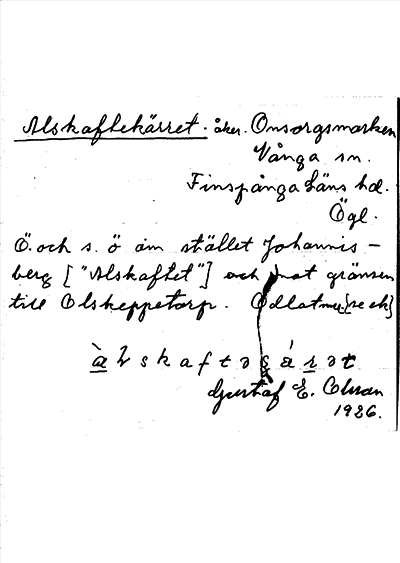 Alskaftekärret. åker. Onsorgsmarken
Vånga sn.
Finspånga läns hd.
Ögl.
Ö. och s. ö om stället Johannis-
berg ["Alskaftet"] och mot gränsen
till Olskeppetorp. Odlat
Gustaf E. Olson
1926.